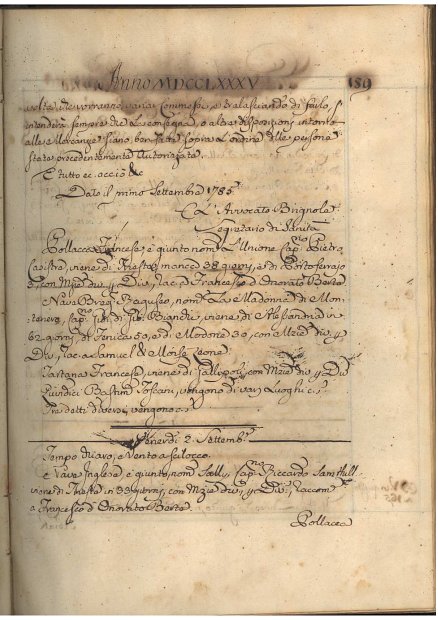 Anno MDCCLXXXV
159
volta che vorranno variar sommossi, e tralasciando di farlo, s'
intenderà sempre che le consegne, o altre disposizioni intorno
alle siano ben fatte sopra l'ordine delle persone
state precedentemente autorizzate.
E tutto ec. acciò &c
Dato il primo Settembre 1785.
L'Avvocato Brignole
Segretario di Sanità
Pollacca Francese, è giunto nom. L'Unione Cap.no Pietro
viene di manca 38 giorni, e di Portoferrajo
5, con Mzie div. p Div., rac. a Francesco d'Onorato Berte
Nave Brig. Raguseo, nom. La Madonna di Mon-
tenero, Cap.no viene di Alessandria in
62 giorni, di Fenica 50, e di Modone 30, con Mzie div. p
Div., rac. a Samuel di Mosè Leone.
Tartana Francese, viene di Gallipoli con Mzie div. p Div.
Quindici Bastim. Toscani, vengono di varj Luoghi c.s.
Tre detti diversi, vengono c.s.
Venerdì 2. Settemb.
Tempo chiaro, e Vento a scilocco.
E Nave Inglese, è giunto, nom. Cap.no Riccardo
viene di in 33 giorni, con Mzie div. p Div., raccom.
a Francesco d'Onorato Berte.
Pollacca